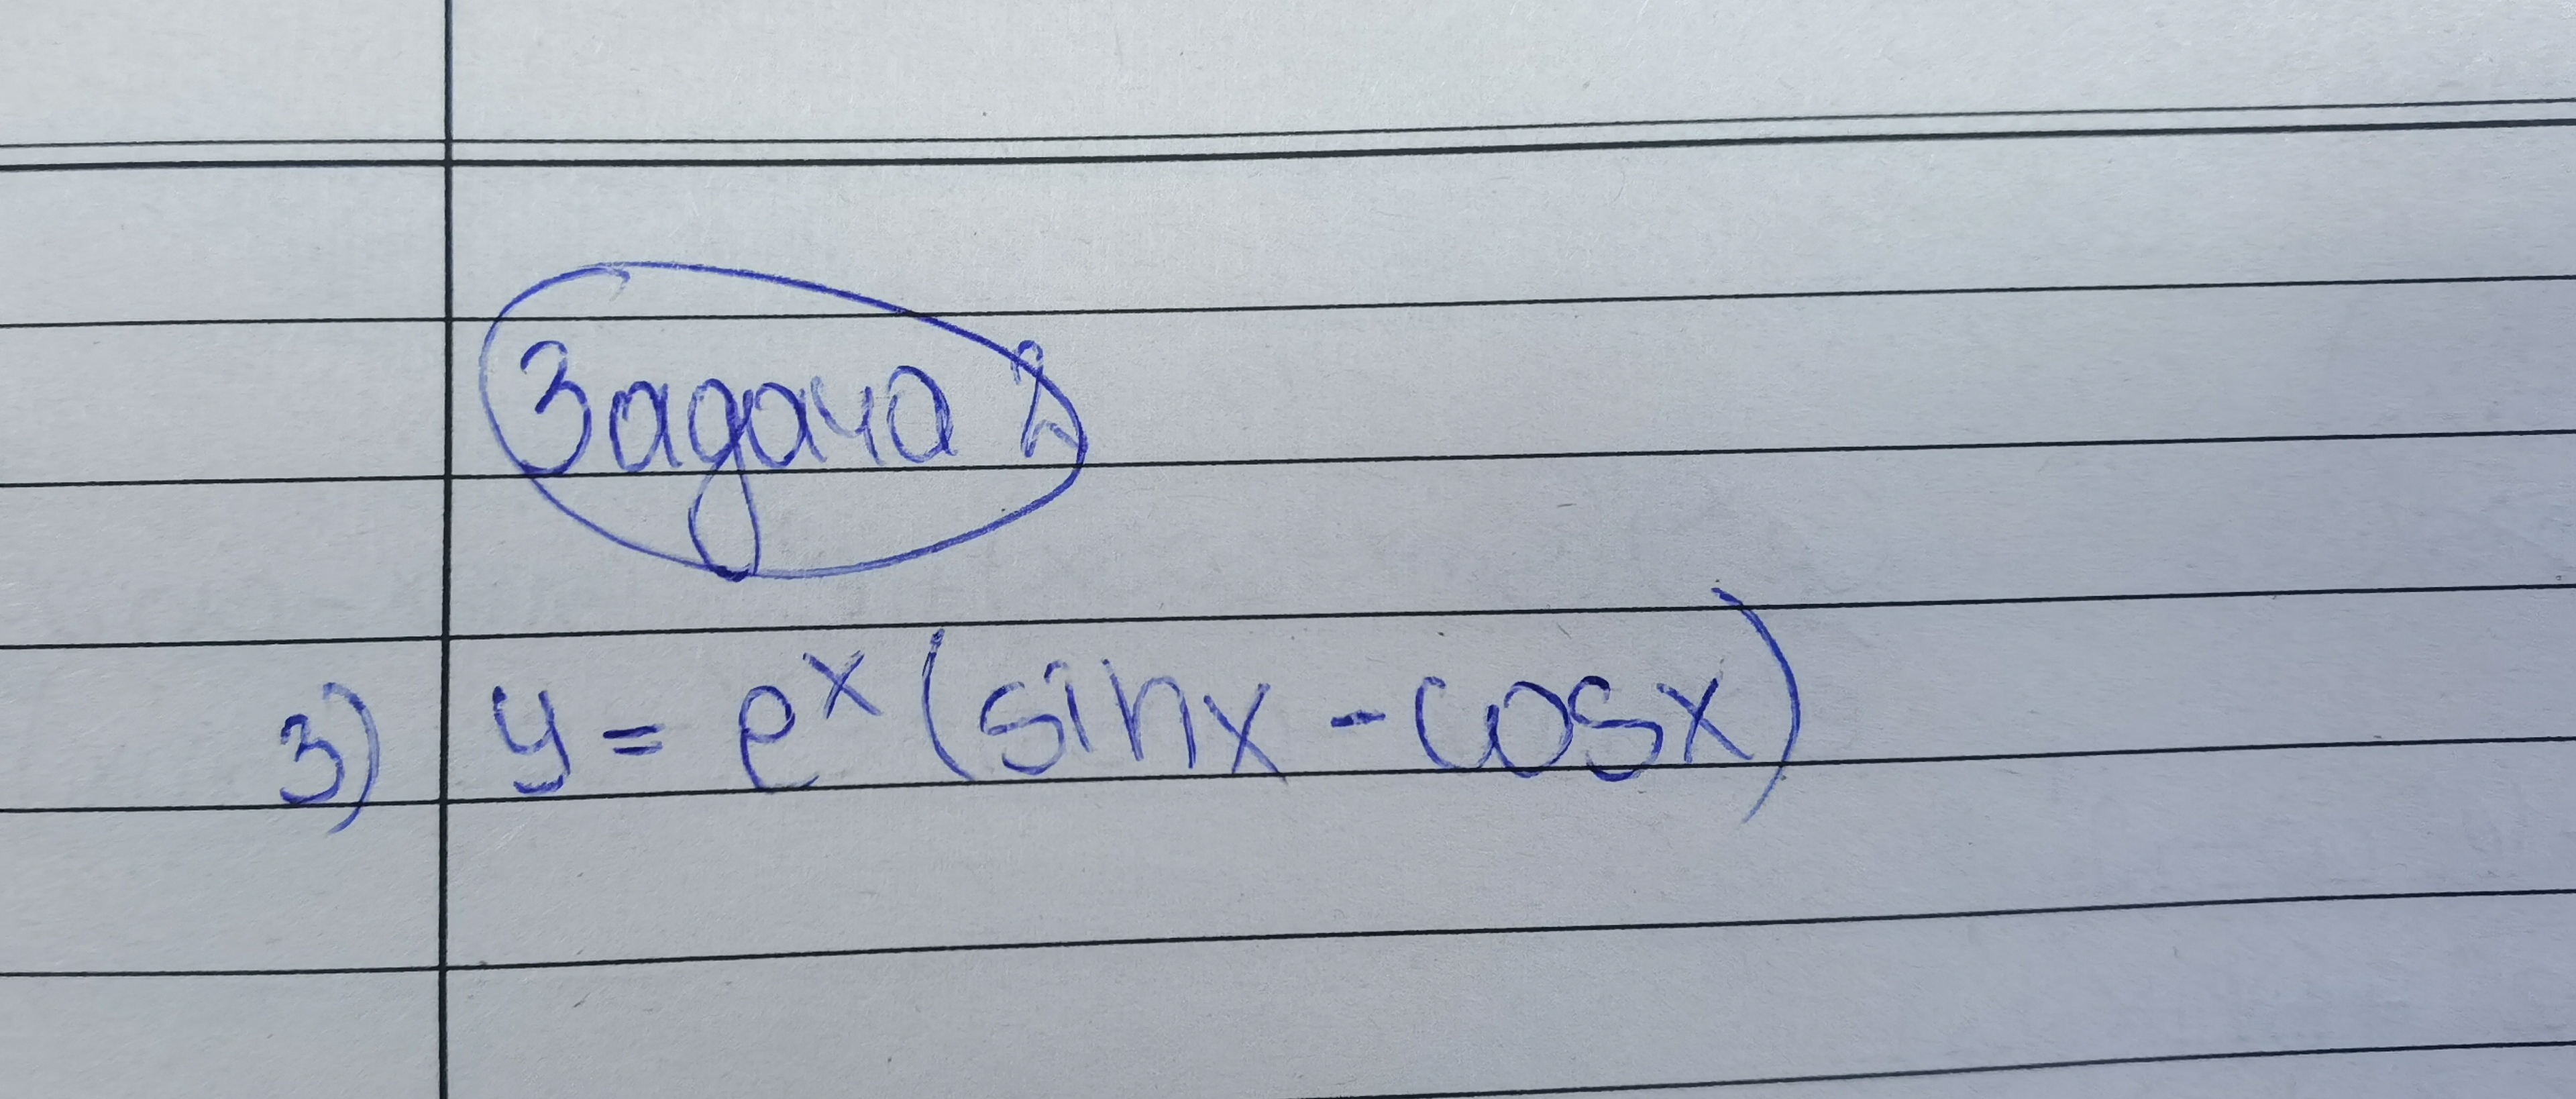 Задача 2
3) y = e^x (sinx - cosx)